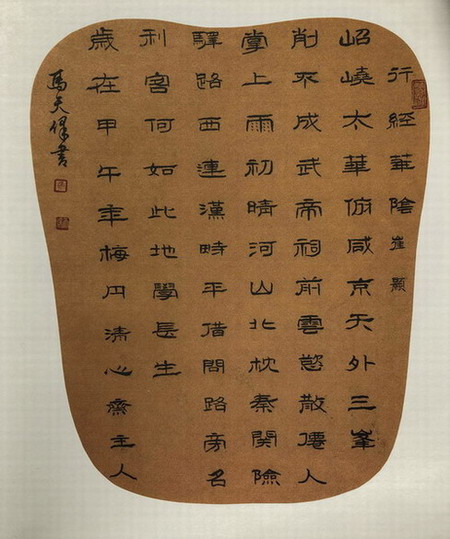 行經華陰 崔顥
岹嶢太華俯咸京天外三峯
削不成武帝祠前雲慾散僊人
掌上雨初晴河山北枕秦関險
驛路西連漢畤平借問路旁名
利客何如此地學長生
歲在甲午年梅月清心齋主人
馬天書